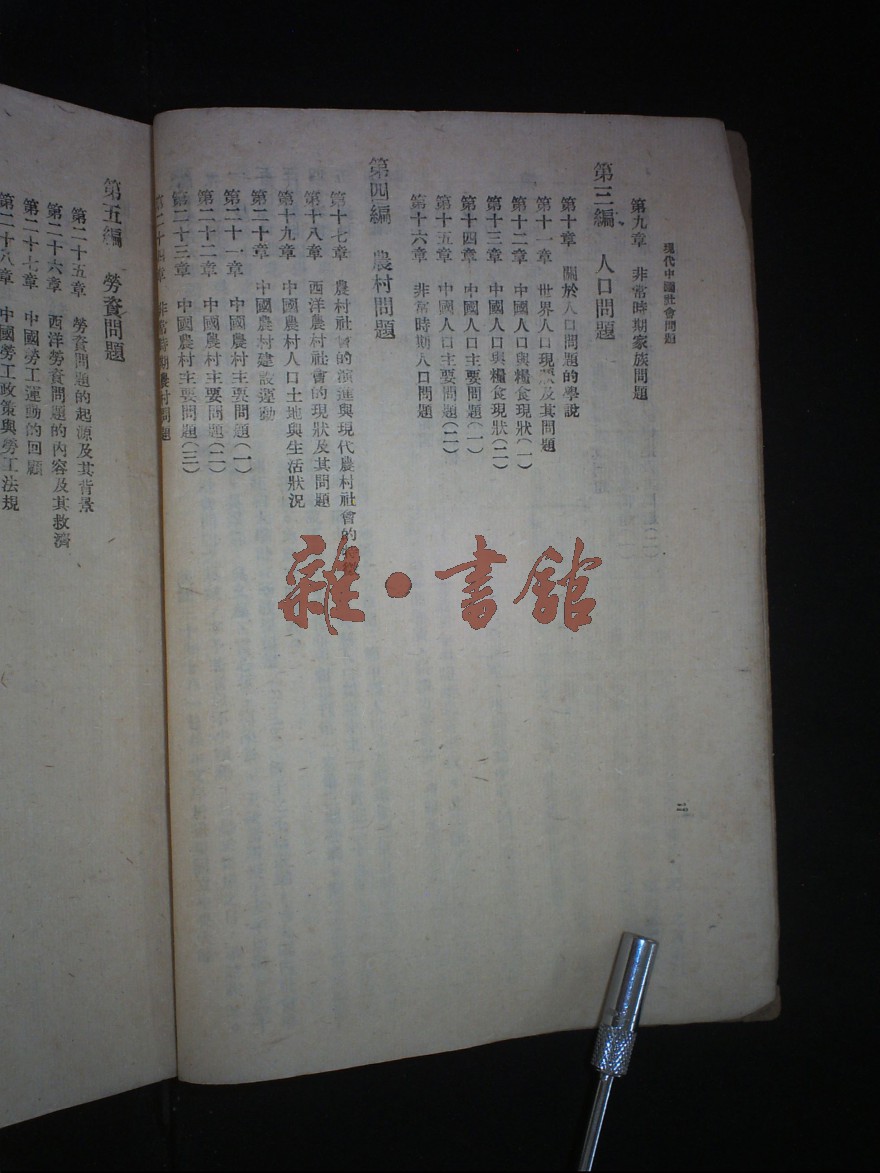 現代中國社會問題
第九章 非常時期家族問題
第三編 人口問題
第十章 關於人口問題的學說
第十一章 世界人口現狀及其問題
第十二章 中國人口與糧食現狀(一)
第十三章 中國人口與糧食現狀(二)
第十四章 中國人口主要問題(一)
第十五章 中國人口主要問題(二)
第十六章 非常時期人口問題
第四編 農村問題
第十七章 農村社會的演進與現代農村社會的
第十八章 西洋農村社會的現狀及其問題
第十九章 中國農村人口土地與生活狀況
第二十章 中國農村建設運動
第二十一章 中國農村主要問題(一)
第二十二章 中國農村主要問題(二)
第二十三章 中國農村主要問題(三)
第二十四章 非常時期農村問題
二
第五編 勞資問題
第二十五章 勞資問題的起源及其背景
第二十六章 西洋勞資問題的內容及其救濟
第二十七章 中國勞工運動的回顧
第二十八章 中國勞工政策與勞工法規
雜·書館